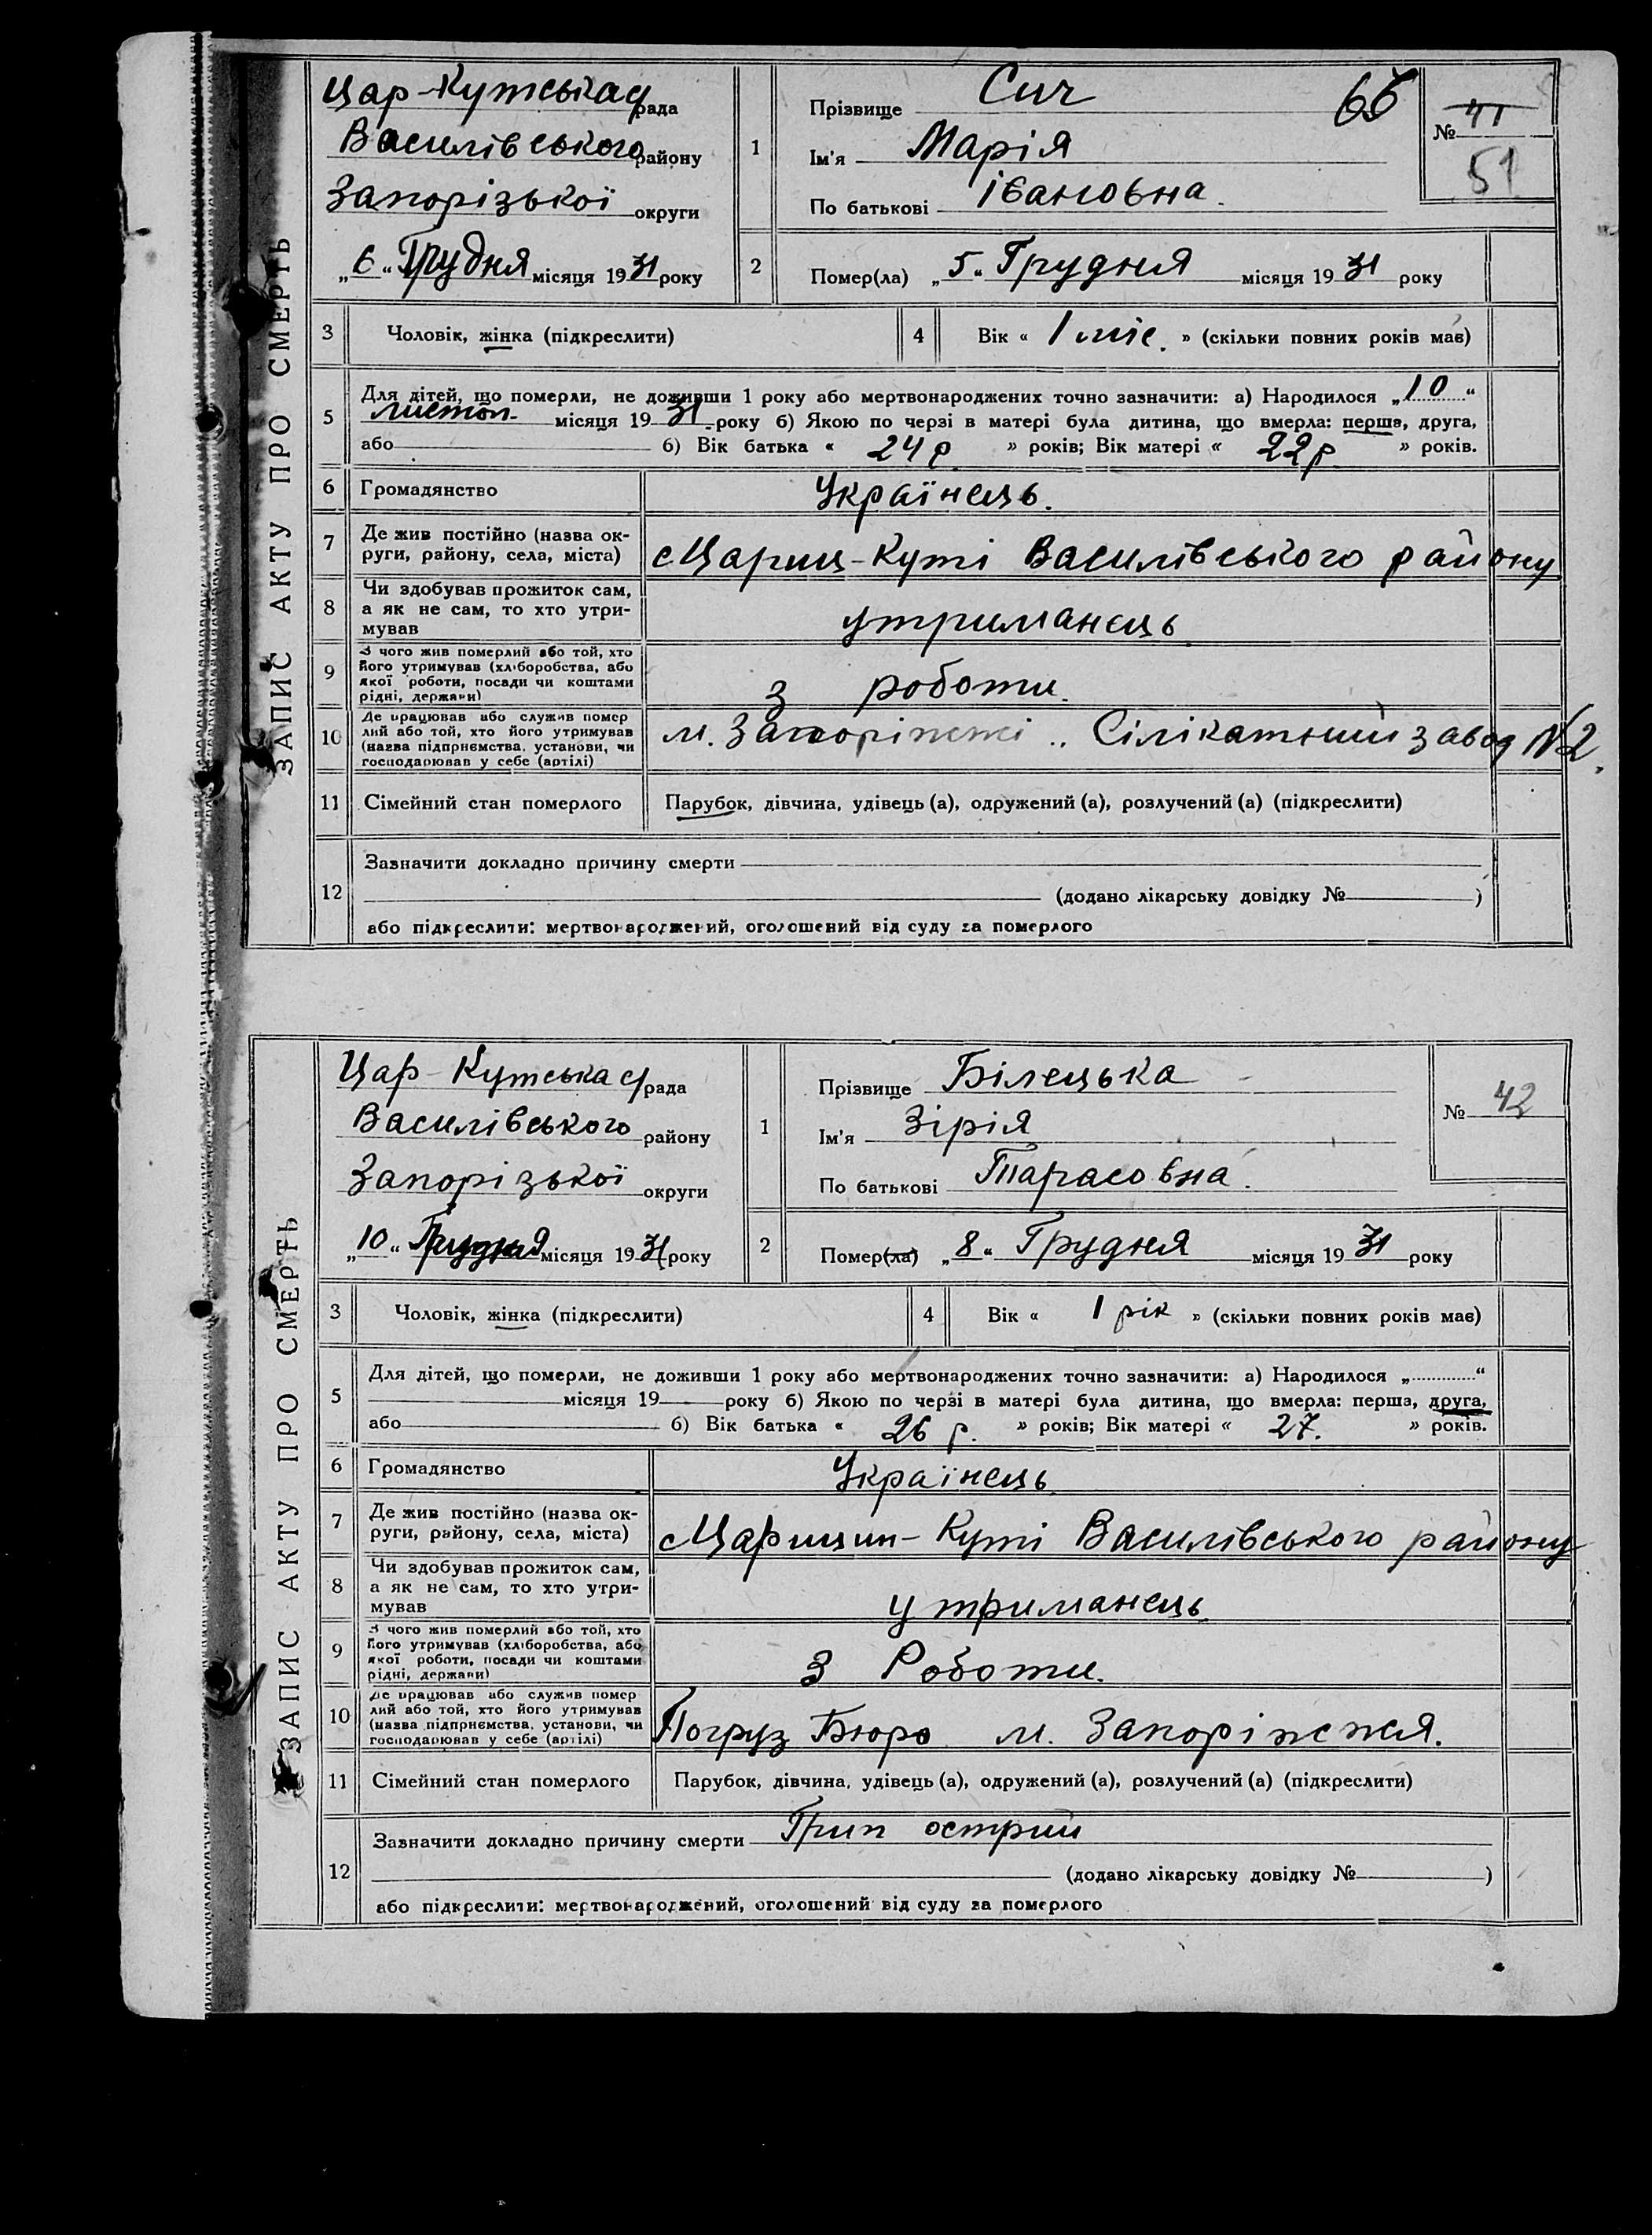 ЗАПИС АКТУ ПРО СМЕРТЬ
Цар-Кутська с/рада
Василівського району
Запорізької округи
„6“ Грудня місяця 1931 року
1
Прізвище Сич
Ім'я Марія
По батькові Івановна.
66
№ 41
51
2
Помер(ла) „5“ Грудня місяця 1931 року
3 Чоловік, жінка (підкреслити)
4 Вік « 1 міс. » (скільки повних років мав)
5
Для дітей, що померли, не доживши 1 року або мертвонароджених точно зазначити: а) Народилося „10“
листоп. місяця 1931 року б) Якою по черзі в матері була дитина, що вмерла: перша, друга,
або б) Вік батька « 24 р. » років; Вік матері « 22 р. » років.
6 Громадянство Українець.
7 Де жив постійно (назва ок-
руги, району, села, міста) с Цариц-Куті Василівського району
8 Чи здобував прожиток сам,
а як не сам, то хто утри-
мував утриманець
9 З чого жив померлий або той, хто
його утримував (хліборобства, або
якої роботи, посади чи коштами
рідні, держави) з роботи.
10 Де працював або служив помер
лий або той, хто його утримував
(назва підприємства, установи, чи
господарював у себе (артілі) м. Запоріжжі .. Сілікатний завод №2.
11 Сімейний стан померлого Парубок, дівчина, удівець (а), одружений (а), розлучений (а) (підкреслити)
12
Зазначити докладно причину смерти
(додано лікарську довідку № )
або підкреслити: мертвонароджений, оголошений від суду за померлого
ЗАПИС АКТУ ПРО СМЕРТЬ
Цар-Кутська с/рада
Василівського району
Запорізької округи
„10“ Грудня місяця 1931 року
1
Прізвище Білецька
Ім'я Зірія
По батькові Тарасовна.
№ 42
2
Помер(ла) „8“ Грудня місяця 1931 року
3 Чоловік, жінка (підкреслити)
4 Вік « 1 рік » (скільки повних років мав)
5
Для дітей, що померли, не доживши 1 року або мертвонароджених точно зазначити: а) Народилося „ “
місяця 19 року б) Якою по черзі в матері була дитина, що вмерла: перша, друга,
або б) Вік батька « 26 р. » років; Вік матері « 27. » років.
6 Громадянство Українець
7 Де жив постійно (назва ок-
руги, району, села, міста) с Царицин-Куті Василівського району
8 Чи здобував прожиток сам,
а як не сам, то хто утри-
мував утриманець
9 З чого жив померлий або той, хто
його утримував (хліборобства, або
якої роботи, посади чи коштами
рідні, держави) З Роботи.
10 Де працював або служив помер
лий або той, хто його утримував
(назва підприємства, установи, чи
господарював у себе (артілі) Погруз Бюро м. Запоріжжя.
11 Сімейний стан померлого Парубок, дівчина, удівець (а), одружений (а), розлучений (а) (підкреслити)
12
Зазначити докладно причину смерти Грип острий
(додано лікарську довідку № )
або підкреслити: мертвонароджений, оголошений від суду за померлого